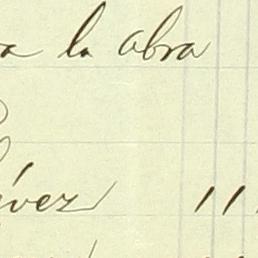 a la obra
vez 11